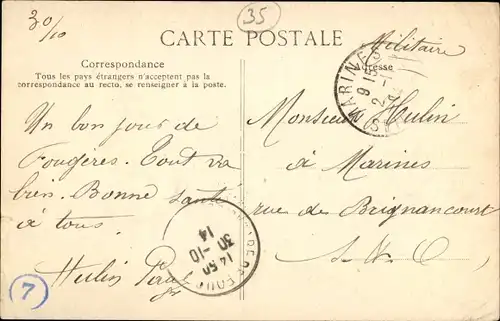 30/10
35
CARTE POSTALE
Militaire
Correspondance
Tous les pays étrangers n'acceptent pas la
correspondance au recto, se renseigner à la poste.
Adresse
MARINES
9 15
2 - 1
Un bon jour de
Fougères. Tout va
bien. Bonne santé
à tous.
Hulin
Monsieur Hulin
à Marines
rue de Brignancourt
S. & O
14 50
30 -10
14
7